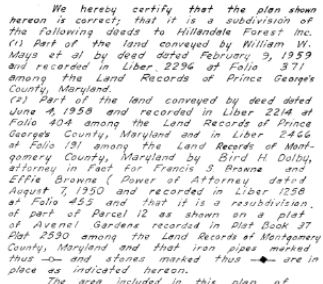 We hereby certify that the plan shown
hereon is correct; that it is a subdivision of
the following deeds to Hillandale Forest Inc.
(1) Part of the land conveyed by William W.
Mays et al by deed dated February 9, 1959
and recorded in Liber 2296 at Folio 371
among the Land Records of Prince George's
County, Maryland.
(2) Part of the land conveyed by deed dated
June 4, 1958 and recorded in Liber 2214 at
Folio 404 among the Land Records of Prince
George's County, Maryland and in Liber 2466
at Folio 191 among the Land Records of Mont-
gomery County, Maryland by Bird H. Dolby,
attorney in Fact for Francis J. Browne and
Effie Browne (Power of Attorney dated
August 7, 1950 and recorded in Liber 1258
at Folio 455 and that it is a resubdivision
of part of Parcel 12 as shown on a plat
of Avenel Gardens recorded in Plat Book 37
Plat 2590 among the Land Records of Montgomery
County, Maryland and that iron pipes marked
thus and stones marked thus are in
place as indicated hereon.
The area included in this plan of